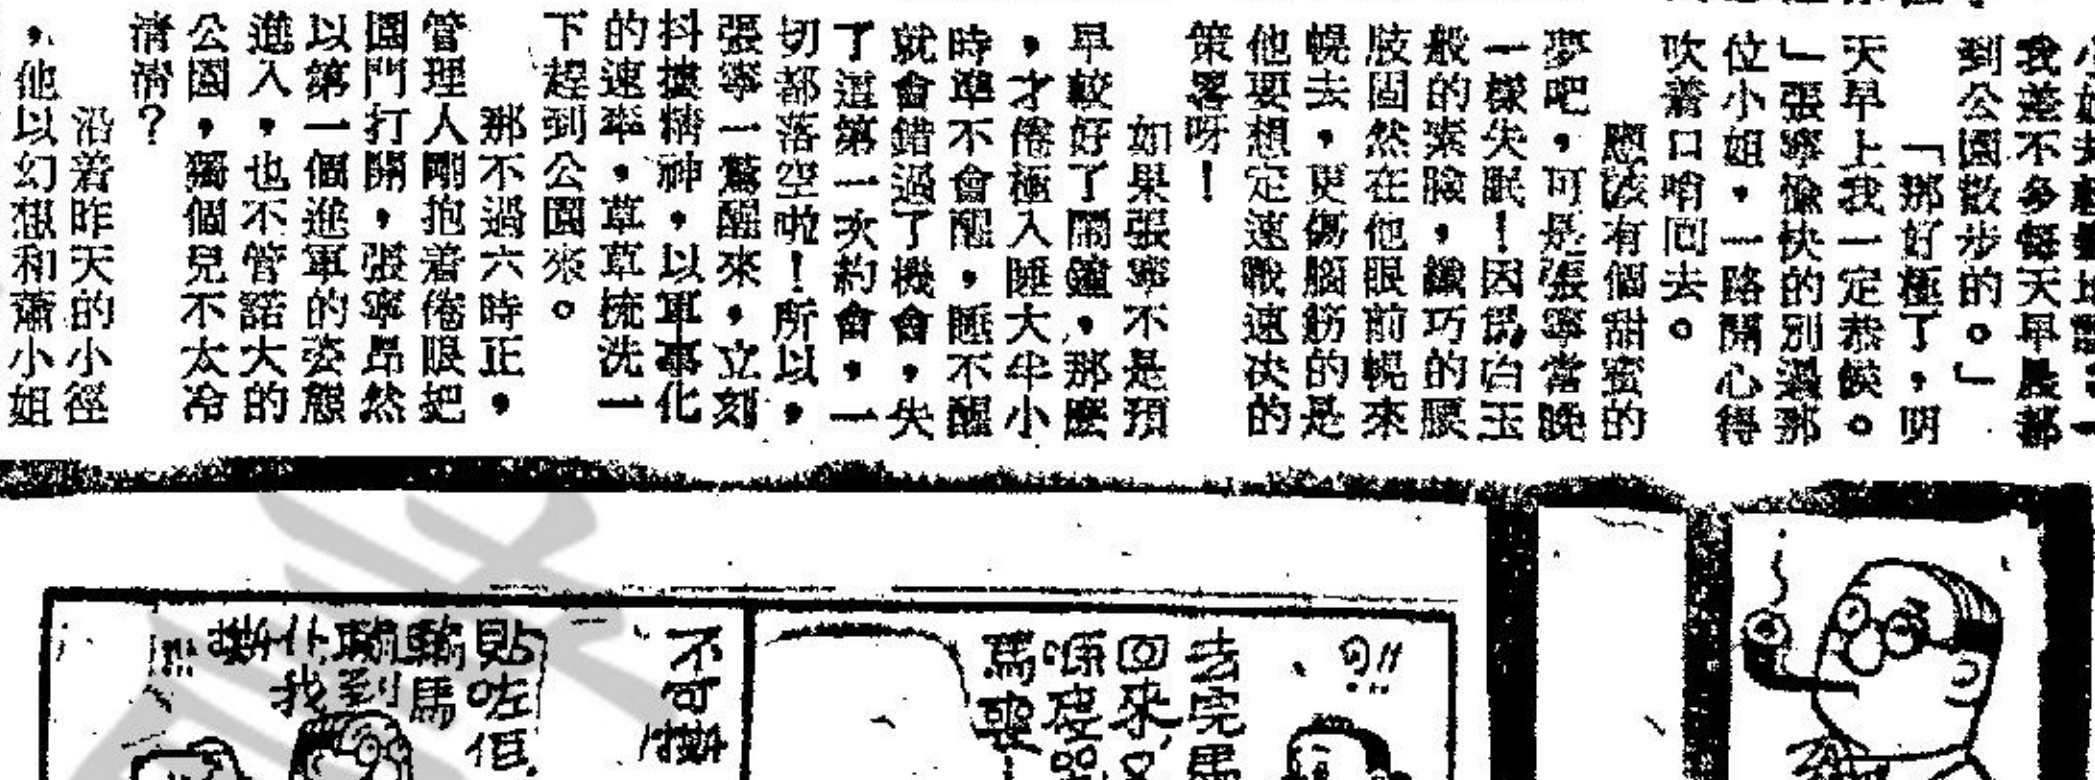 我差不多每天早晨都
到公園散步的。」
「那好極了，明
天早上我一定恭候。
」張寧愉快的別過那
位小姐，一路開心得
吹着口哨回去。
應該有個甜蜜的
夢吧，可是張寧當晚
一樣失眠！因爲白玉
般的素臉，纖巧的腰
肢固然在他眼前幌來
幌去，更傷腦筋的是
他要想定速戰速決的
策畧呀！
如果張寧不是預
早較好了鬧鐘，那麽
，才倦極入睡大半小
時準不會醒，睡不醒
就會錯過了機會，失
了這第一次約會，一
切都落空啦！所以，
張寧一驚醒來，立刻
抖擻精神，以軍事化
的速率，草草梳洗一
下趕到公園來。
那不過六時正，
管理人剛抱着倦眼把
園門打開，張寧昂然
以第一個進軍的姿態
進入，也不管諾大的
公園，獨個兒不太冷
清清？
沿着昨天的小徑
，他以幻想和蕭小姐
去完馬
回來，又
嘥
不可
貼咗佢
輸馬
輸到
我